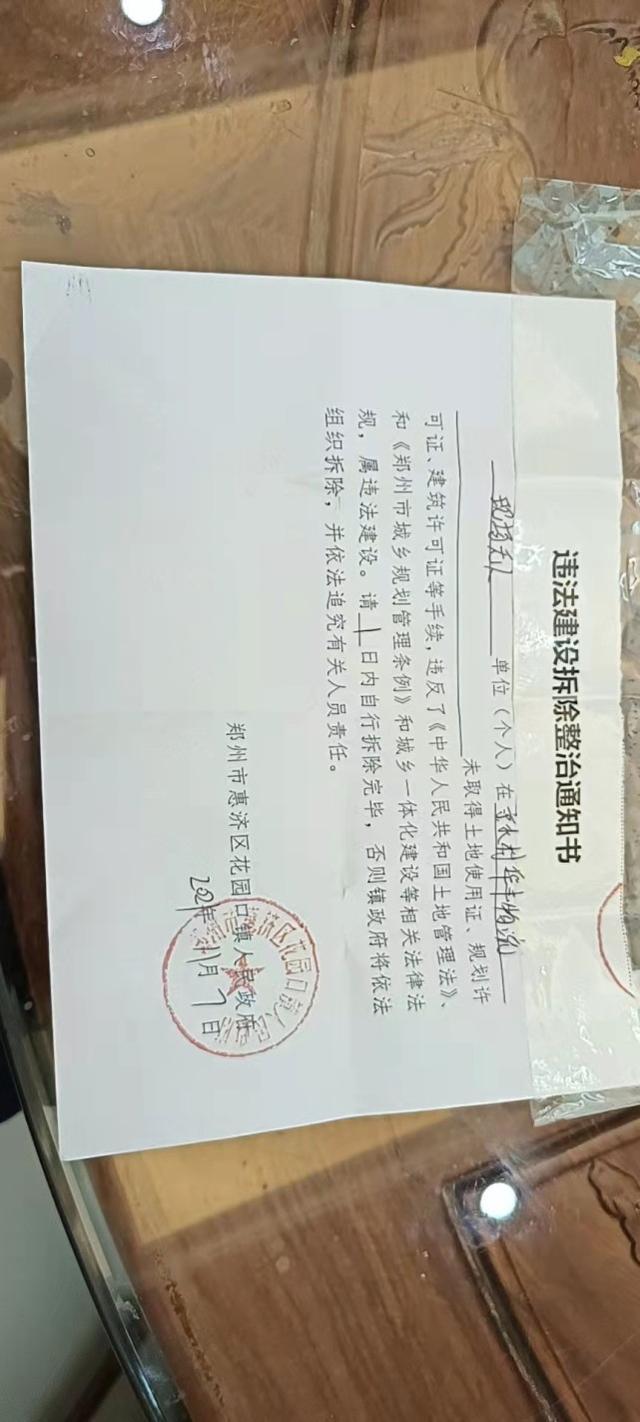 违法建设拆除整治通知书
单位（个人）在 村华丰物流
未取得土地使用证、规划许
可证、建筑许可证等手续，违反了《中华人民共和国土地管理法》、
和《郑州市城乡规划管理条例》和城乡一体化建设等相关法律法
规，属违法建设。请 日内自行拆除完毕，否则镇政府将依法
组织拆除，并依法追究有关人员责任。
郑州市惠济区花园口镇人民政府
年 月7日